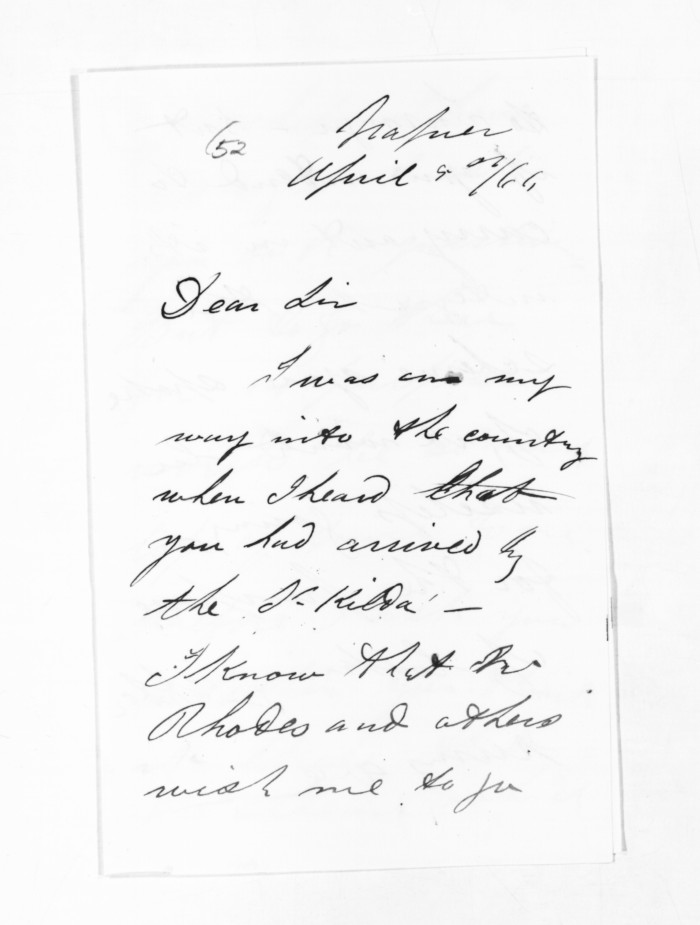 Napier
(52
April 9th/66
Dear Sir
I was on my
way into the country
when I heard that
you had arrived by
the St Kilda' —
I know that Mr
Rhodes and others
wish me to